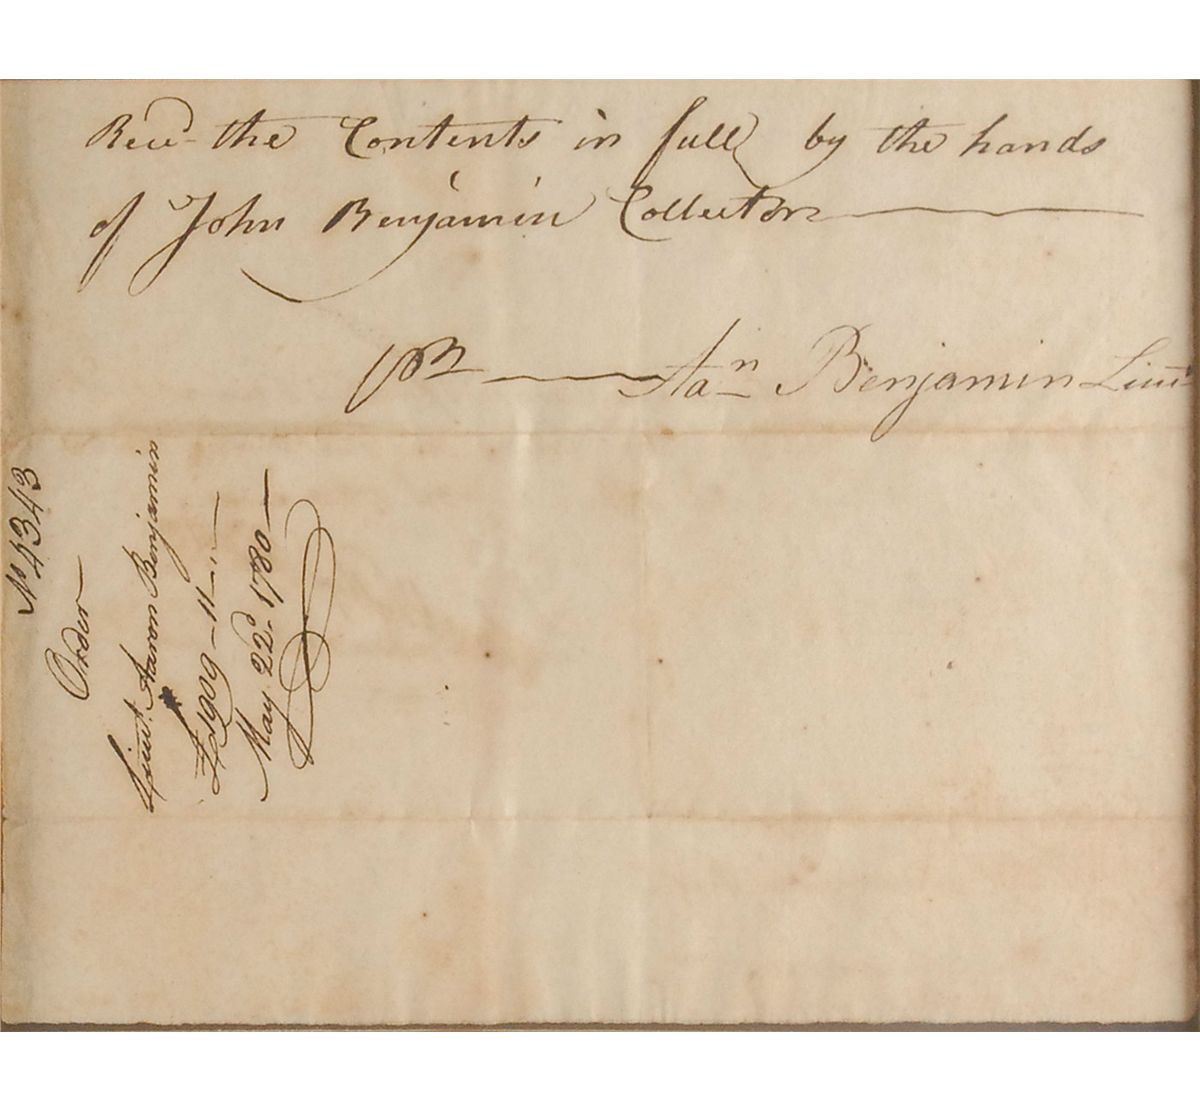 Recd the Contents in full by the hands
of John Benjamin Collector
Pr Aan Benjamin Lieut
No 4343
Order
Lieut. Aaron Benjamin
£1909-11-.
May 22d. 1780